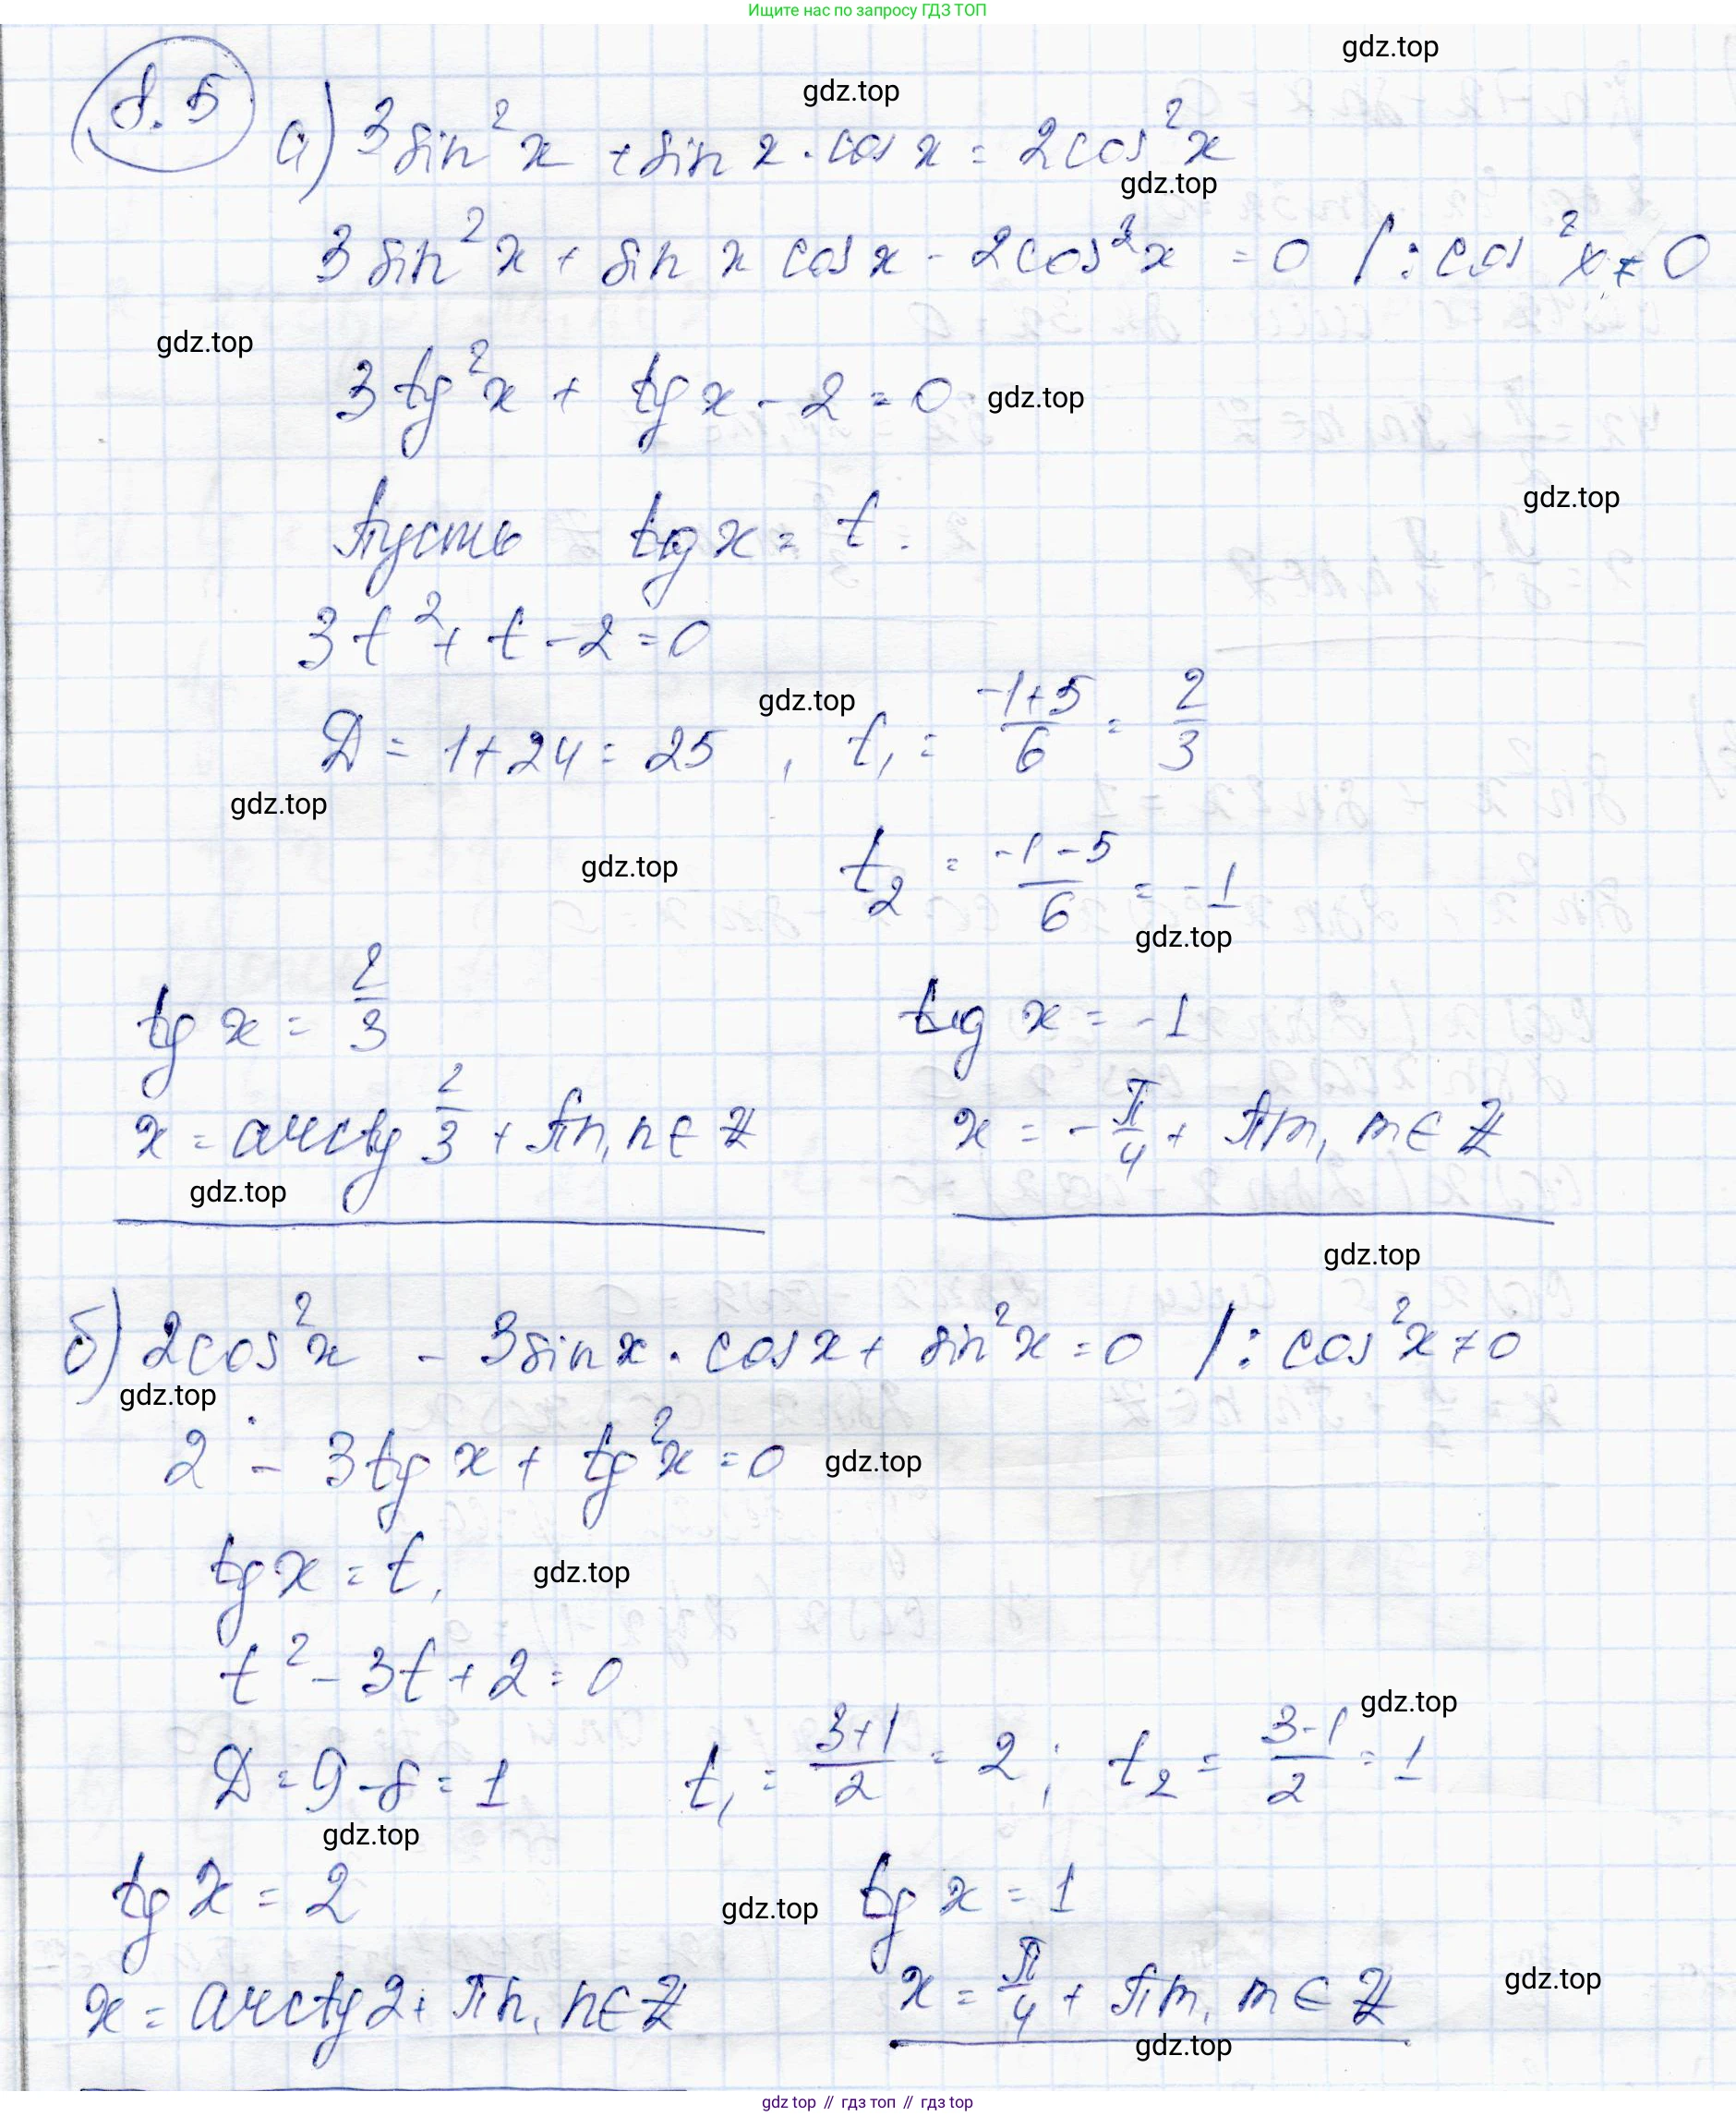 Ищите нас по запросу ГДЗ ТОП
gdz.top
8.5
gdz.top
а) 3sin²x + sin x · cos x = 2cos²x
gdz.top
3 sin²x + sin x cos x - 2cos²x = 0 / : cos²x ≠ 0
gdz.top
3 tg²x + tg x - 2 = 0
gdz.top
gdz.top
Пусть tg x = t.
3t² + t - 2 = 0
gdz.top
D = 1+24 = 25 , t₁ = (-1+5)/6 = 2/3
gdz.top
gdz.top
t₂ = (-1-5)/6 = -1
gdz.top
tg x = 2/3 tg x = -1
x = arctg 2/3 + πn, n ∈ Z x = -π/4 + πm, m ∈ Z
gdz.top
gdz.top
б) 2cos²x - 3sin x · cos x + sin²x = 0 / : cos²x ≠ 0
gdz.top
2 - 3tg x + tg²x = 0
gdz.top
tg x = t,
gdz.top
t² - 3t + 2 = 0
gdz.top
D = 9 - 8 = 1 t₁ = (3+1)/2 = 2 ; t₂ = (3-1)/2 = 1
gdz.top
tg x = 2 tg x = 1
gdz.top
x = arctg 2 + πn, n ∈ Z x = π/4 + πm, m ∈ Z
gdz.top
gdz.top
gdz top // гдз топ // гдз top